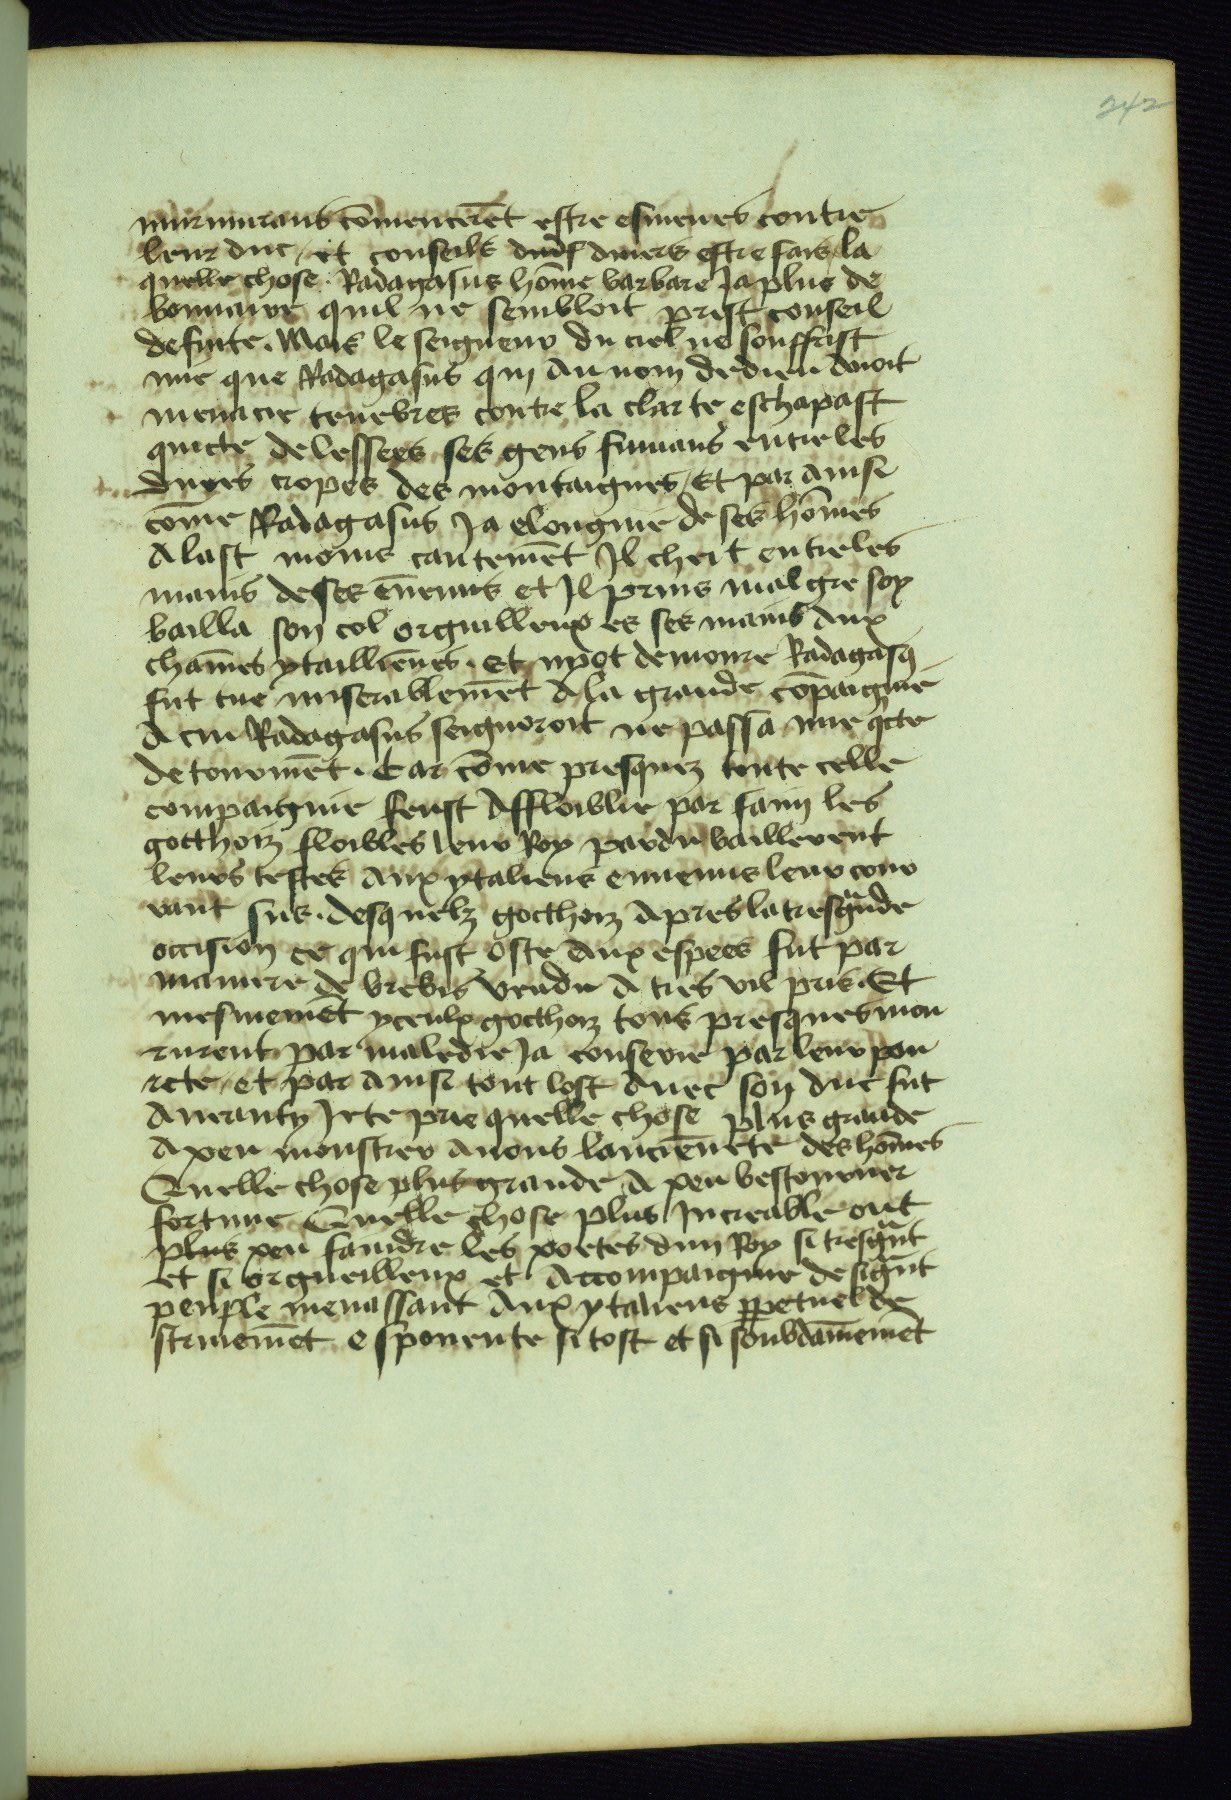 242
murmurans cōmencerēt estre esmeues contre
leur duc / et conseils diuers estre fais / la
quelle chose . Radagasus hōme barbare Ja plus de
bonnaire quil ne sembloit prist conseil
de fuite . Mais le seigneur du ciel ne souffrist
mie que Radagasus qui au nom de dieu auoit
menacie tenebres contre la clarte eschapast
quicte delessees ses gens fumans entre les
dures cropes des montaignes / Et par ainsi
cōme Radagasus Ja elongnie de ses hōmes
alast moins cautemēt Il cheit entre les
mains de ses ēnemis et Il prins malgre soy
bailla son col orguilleux es ses mains aux
chaīnes ytalliēnes . Et npot demoure Radagasq
fut tue miserablemēt a la grande cōpaignie
a cui Radagasus seignoroit ne passa mie qcte
de tourmēt . Car cōme presquez toute celle
compaignie feust affloiblie par faim les
gotthoiz floibles leur Roy pardu baillerent
leurs testes aux ytaliens ennemis leur cour
rant sus . desquelz gotthoiz apres la tresgrāde
occision ce qui fust oste aux espees fut par
maniere de brebis vendu a tres vil pris . Et
mesmemēt yceulx gotthoiz tous presques mou
rurent par maledie Ja conseue par leur pou
rete / et par ainsi tout lost auec son duc fut
aneanty Je te prie quelle chose plus grande
a peu monstrer a nous lanciēnete des hōmes
Quelle chose plus grande a peu bestourner
fortune Quelle chose plus Increable ont
plus peu faindre les poetes dun Roy si tresgrāt
et si orgueilleux et accompaignie de si grāt
peuple menassant aux ytaliens ppetuel de
struiemēt espouente si tost et si soubdaīnemēt